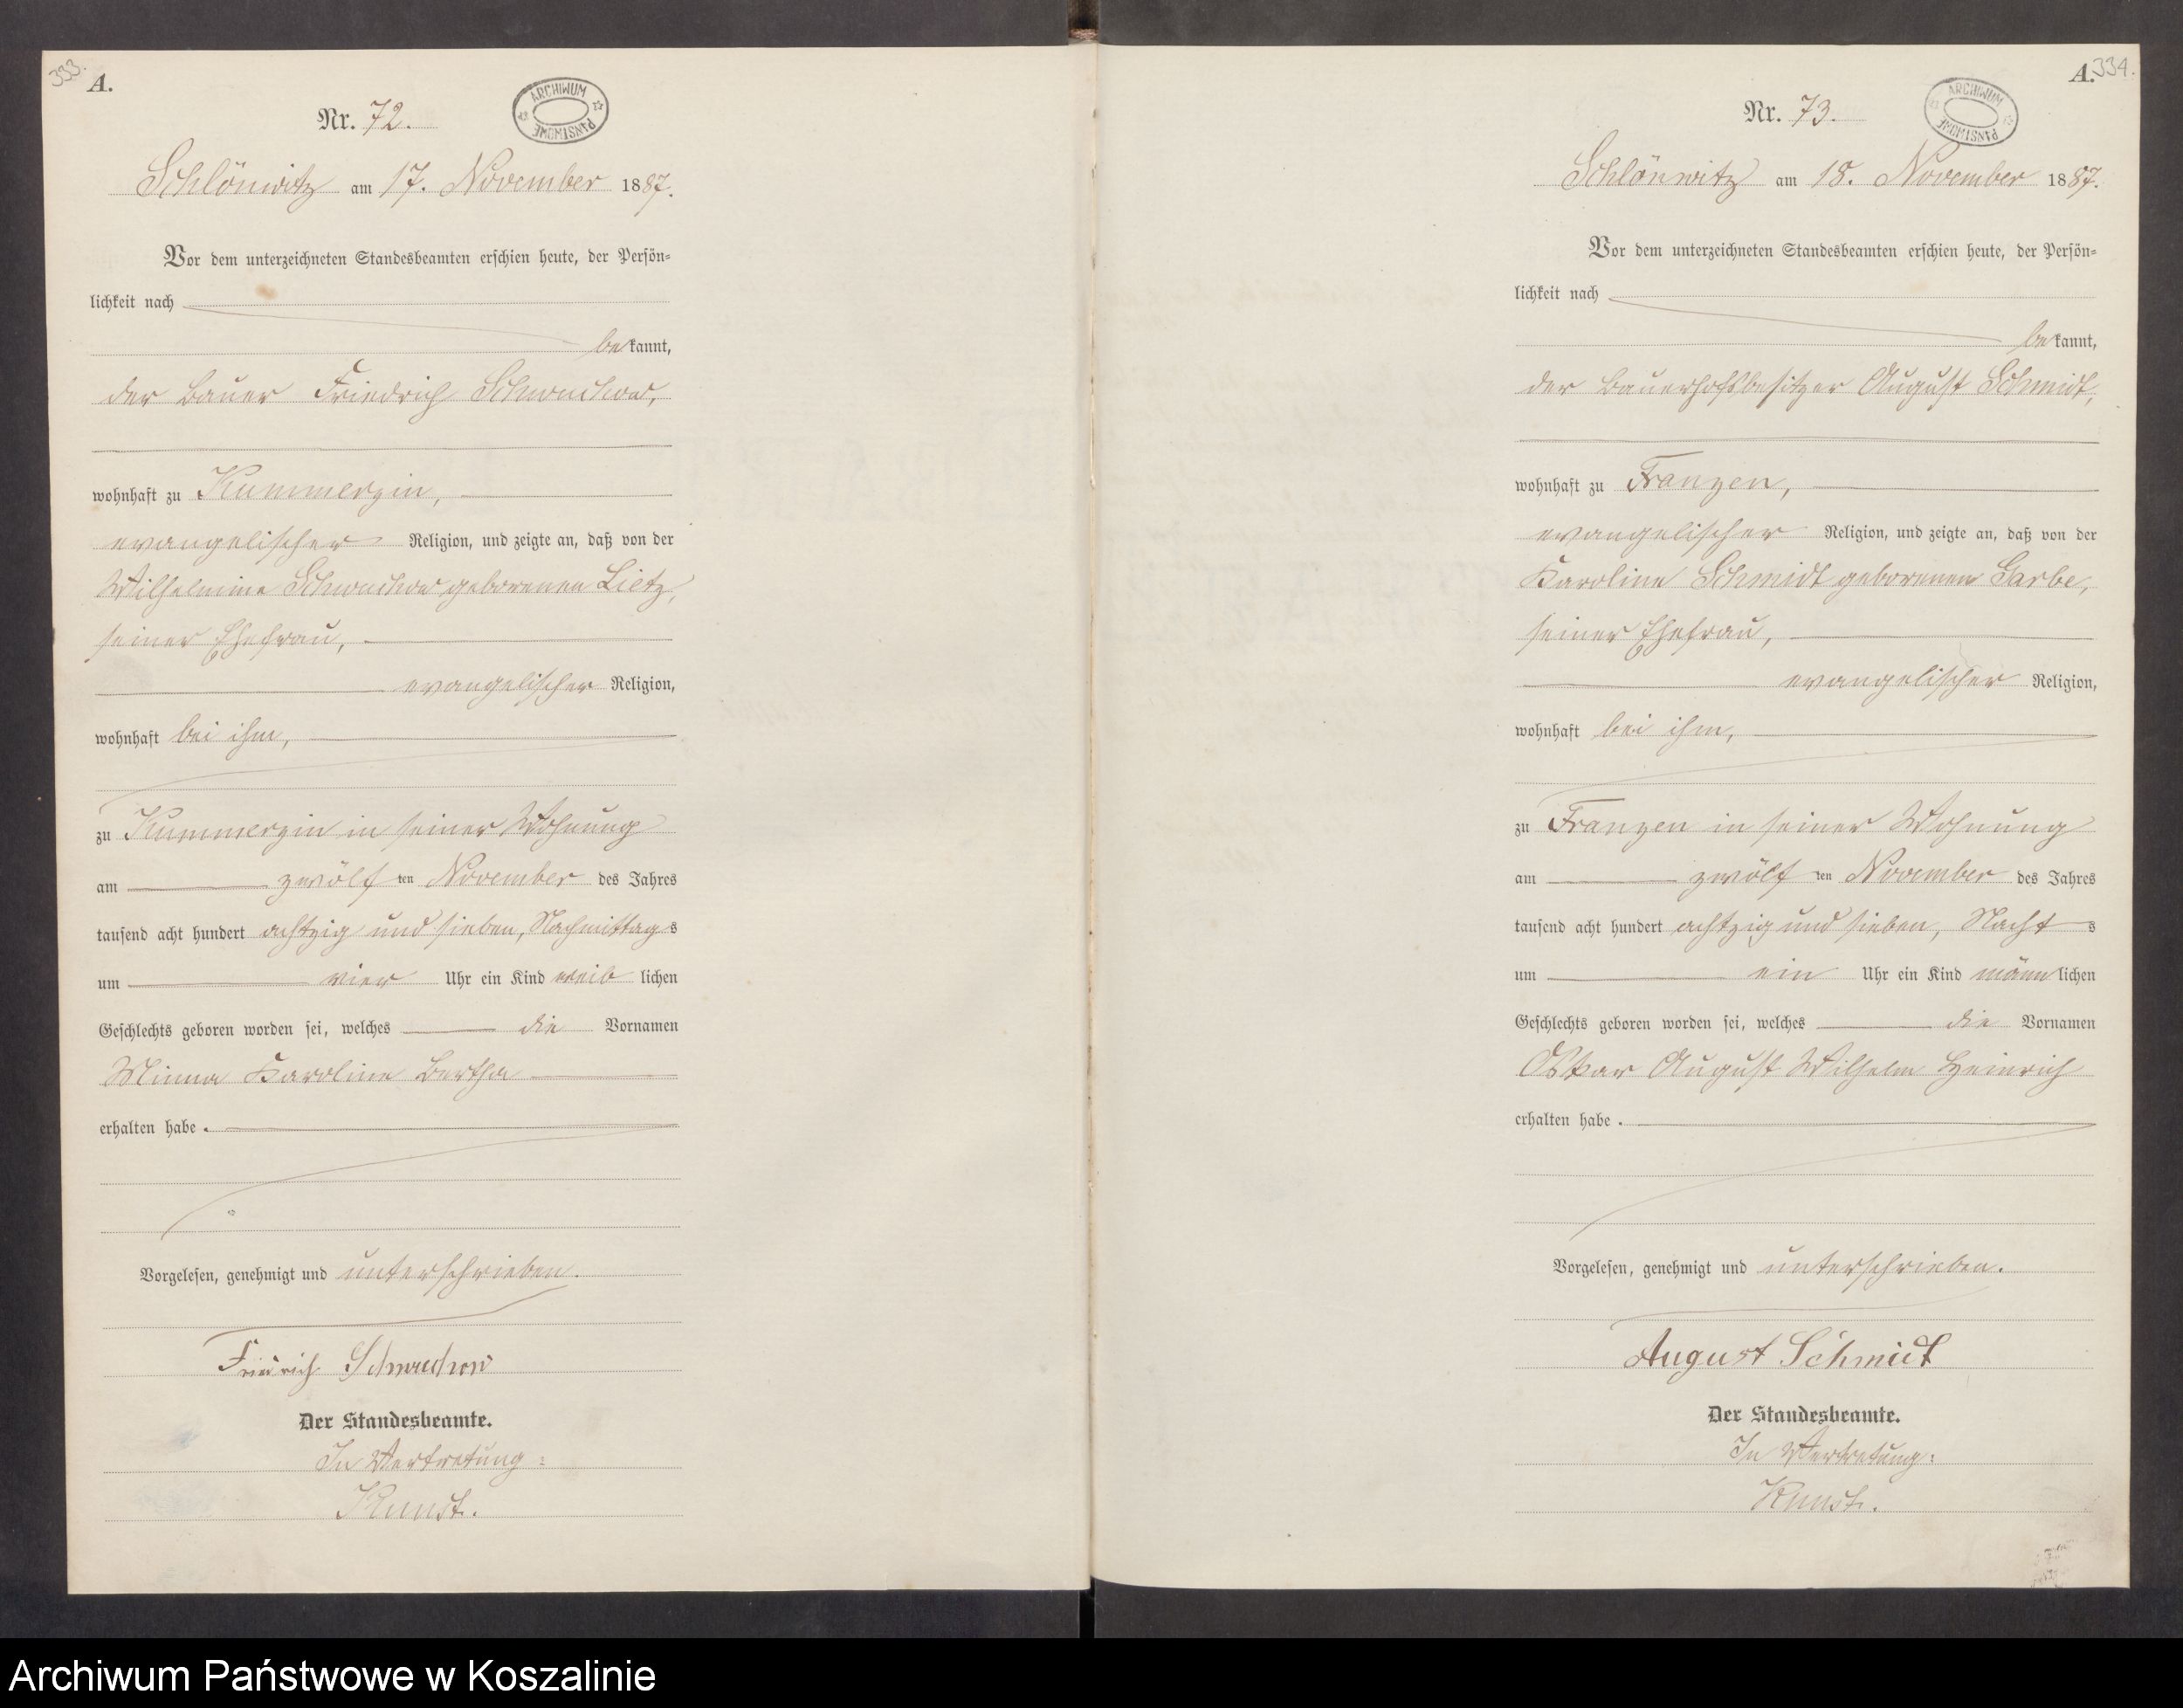 333.
A.
Nr. 72.
ARCHIWUM PAŃSTWOWE
Schlönwitz am 17. November 1887.
Vor dem unterzeichneten Standesbeamten erschien heute, der Persön-
lichkeit nach
bekannt,
der Bauer Friedrich Schwuchow,
wohnhaft zu Kummerzin,
evangelischer Religion, und zeigte an, daß von der
Wilhelmine Schwuchow geborenen Lietz,
seiner Ehefrau,
evangelischer Religion,
wohnhaft bei ihm,
zu Kummerzin in seiner Wohnung
am zwölf ten November des Jahres
tausend acht hundert achtzig und sieben, Nachmittags
um vier Uhr ein Kind weiblichen
Geschlechts geboren worden sei, welches die Vornamen
Minna Karoline Bertha
erhalten habe.
Vorgelesen, genehmigt und unterschrieben.
Friedrich Schwuchow
Der Standesbeamte.
In Vertretung:
Kunst.
A. 334.
Nr. 73.
ARCHIWUM PAŃSTWOWE
Schlönwitz am 18. November 1887.
Vor dem unterzeichneten Standesbeamten erschien heute, der Persön-
lichkeit nach
bekannt,
der Bauerhofsbesitzer August Schmidt,
wohnhaft zu Franzen,
evangelischer Religion, und zeigte an, daß von der
Karoline Schmidt geborenen Garbe,
seiner Ehefrau,
evangelischer Religion,
wohnhaft bei ihm,
zu Franzen in seiner Wohnung
am zwölf ten November des Jahres
tausend acht hundert achtzig und sieben, Nachts
um ein Uhr ein Kind männlichen
Geschlechts geboren worden sei, welches die Vornamen
Oskar August Wilhelm Heinrich
erhalten habe.
Vorgelesen, genehmigt und unterschrieben.
August Schmidt
Der Standesbeamte.
In Vertretung:
Kunst.
Archiwum Państwowe w Koszalinie